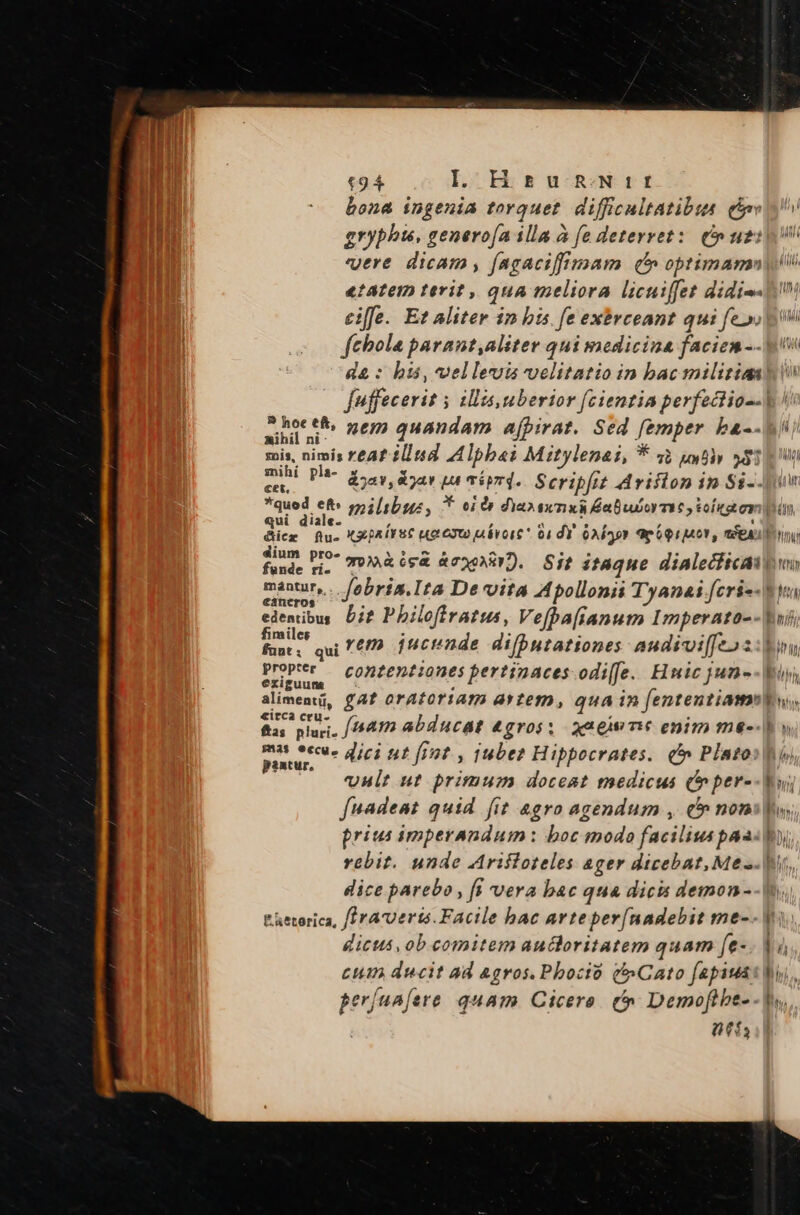 194 I. HEURNII
bona ingenia torquet difficultatibus &
gryphis, generosa illa à se deterret: & ut
vere dicam, sagacissimam & optimam
ætatem terit, qua meliora licuisset didi-
cisse. Et aliter in his se exerceant qui se
scholæ parant, aliter qui medicinæ facien-
dæ: his, vel levis velitatio in hac militia
suffecerit; illis, uberior scientia perfectio-
nem quandam aspirat. Sed semper ha-
reat illud Alphæi Mitylenæi, *
ἄγαν, ἄγαν με τέρπει. Scripsit Ariston in Si-
milibus, * οἱ ἐν διαλεκτικῇ
Sit itaque dialectica
febria. Ita De vita Apollonii Tyanæi scri-
bit Philostratus, Vespasianum Imperato-
rem jucunde disputationes audivisse:
contentiones pertinaces odisse. Huic jun-
gat oratoriam artem, qua in sententiam
suam abducat ægros: enim me-
dici ut sint, jubet Hippocrates. & Plato
vult ut primum doceat medicus & per-
suadeat quid sit ægro agendum, & non
prius imperandum: hoc modo facilius pa-
rebit. unde Aristoteles æger dicebat, Me-
dice parebo, si vera hæc quæ dicis demon-
straveris. Facile hac arte persuadebit me-
dicus, ob comitem auctoritatem quam se-
cum ducit ad ægros. Phociō & Cato sæpius
persuasere quam Cicero & Demosthe-
nes,
* hoc est,
nihil ni-
mis, nimis
mihi pla-
cet.
*quod est
qui diale-
cticæ stu-
dium pro-
funde ri-
mantur,
cancros
edentibus
similes
sunt: qui
propter
exiguum
alimentū,
circa cru-
stas pluri-
mas occu-
pantur.
Rhetorica,